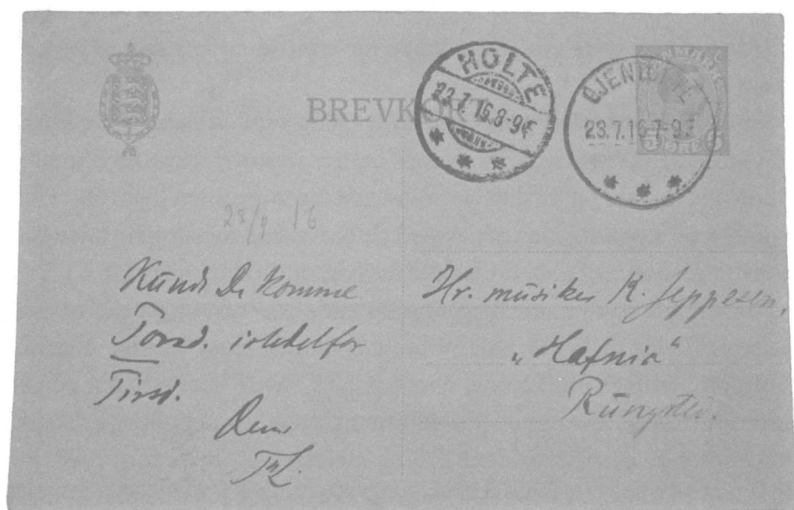 BREVKORT
HOLTE
23.7.16.8-9 F
GJENTOFTE
23.7.16 7-9 F
5 ØRE 5
Kunde De komme
Torsd. istedetfor
Tirsd.
Deres
Th L.
Hr. musiker K. Jeppesen,
„Hafnia“
Rungsted.